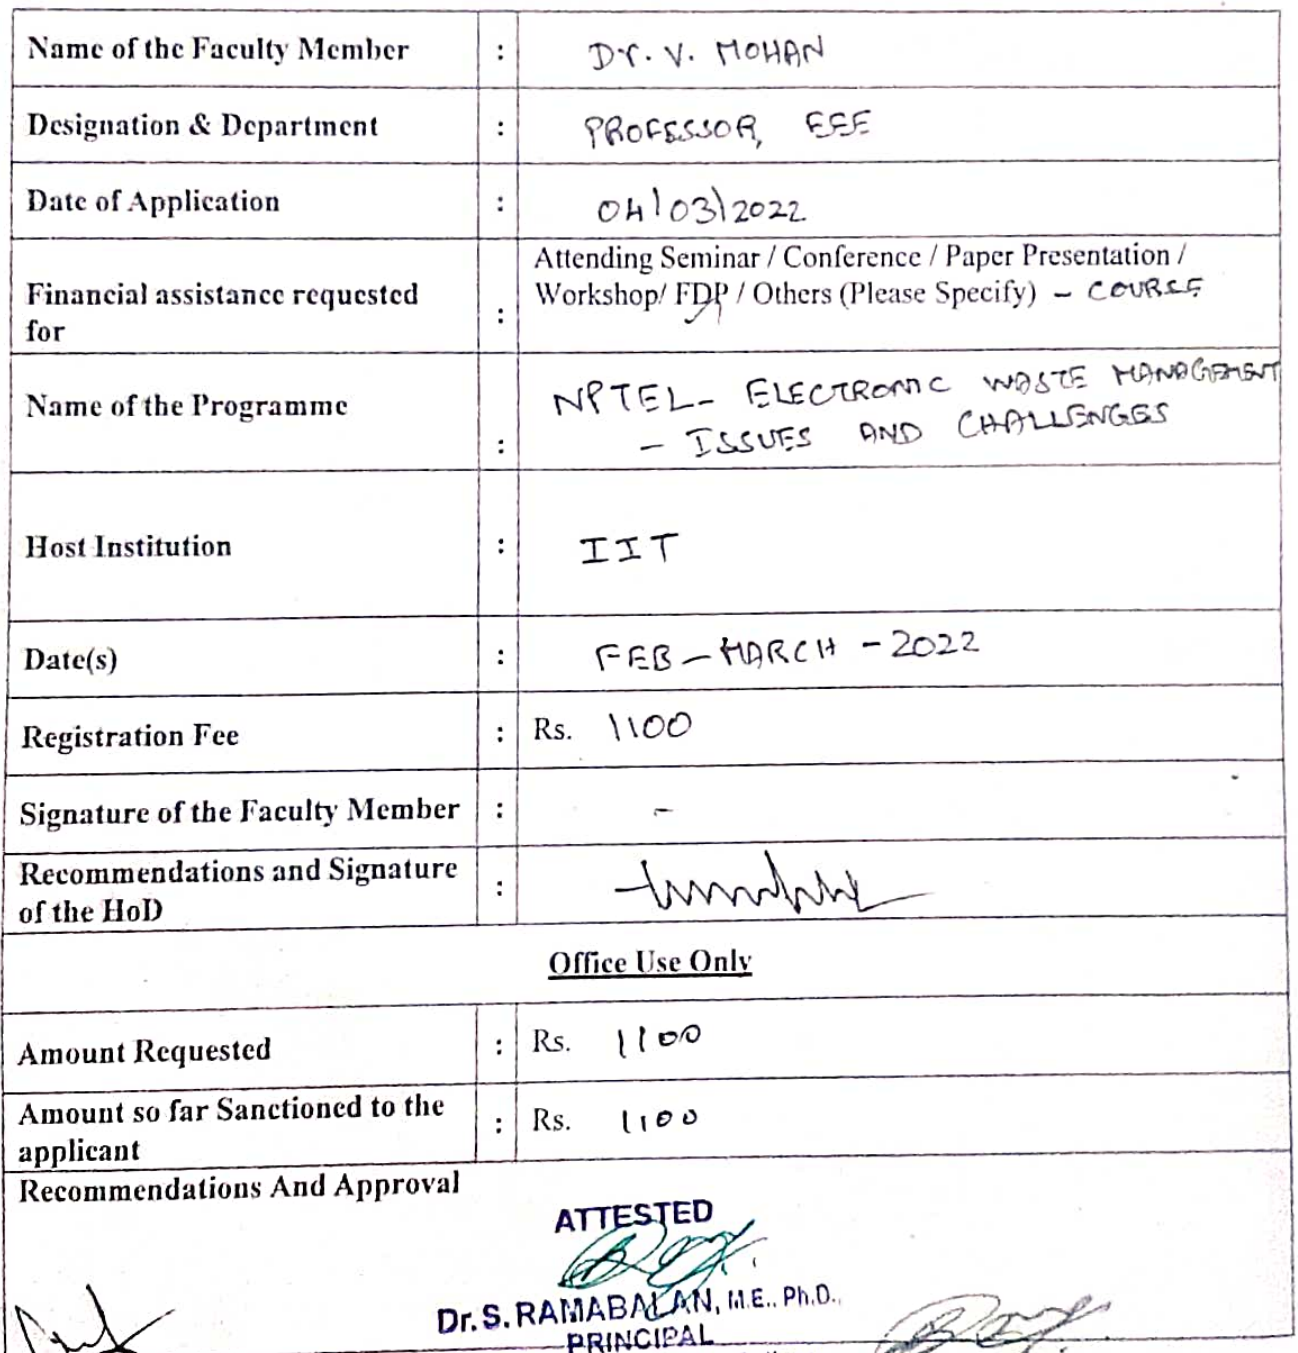 Name of the Faculty Member : Dr. V. MOHAN
Designation & Department : PROFESSOR, EEE
Date of Application : 04/03/2022
Attending Seminar / Conference / Paper Presentation /
Financial assistance requested for : Workshop/ FDP / Others (Please Specify) – COURSE
Name of the Programme : NPTEL- ELECTRONIC WASTE MANAGEMENT
- ISSUES AND CHALLENGES
Host Institution : IIT
Date(s) : FEB – MARCH - 2022
Registration Fee : Rs. 1100
Signature of the Faculty Member : -
Recommendations and Signature
of the HoD :
Office Use Only
Amount Requested : Rs. 1100
Amount so far Sanctioned to the
applicant : Rs. 1100
Recommendations And Approval
ATTESTED
Dr. S. RAMABALAN, M.E., Ph.D.,
PRINCIPAL